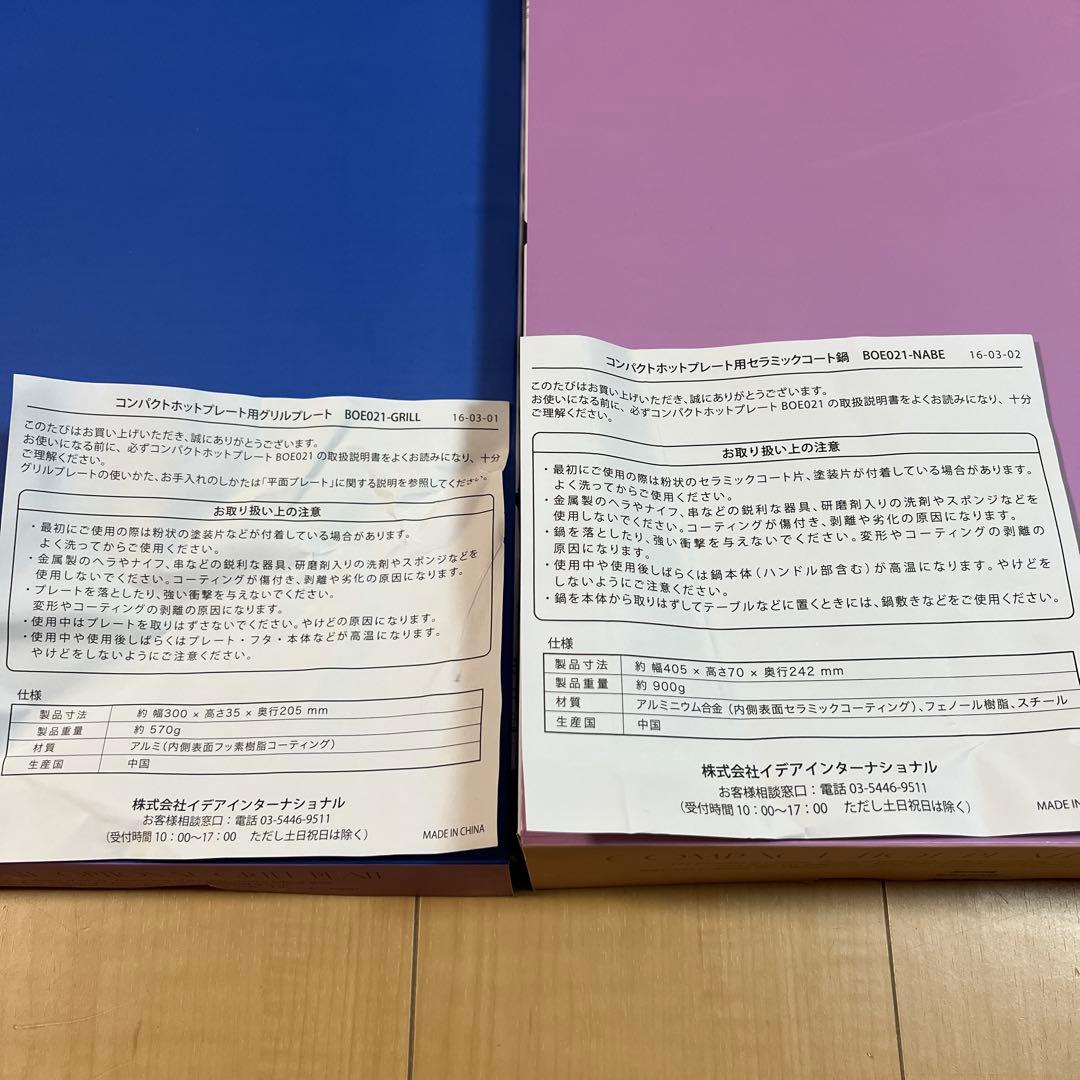 コンパクトホットプレート用グリルプレート BOE021-GRILL 16-03-01
このたびはお買い上げいただき、誠にありがとうございます。
お使いになる前に、必ずコンパクトホットプレート BOE021 の取扱説明書をよくお読みになり、十分
ご理解ください。
グリルプレートの使いかた、お手入れのしかたは「平面プレート」に関する説明を参照してください。
お取り扱い上の注意
・最初にご使用の際は粉状の塗装片などが付着している場合があります。
よく洗ってからご使用ください。
・金属製のヘラやナイフ、串などの鋭利な器具、研磨剤入りの洗剤やスポンジなどを
使用しないでください。コーティングが傷付き、剥離や劣化の原因になります。
・プレートを落としたり、強い衝撃を与えないでください。
変形やコーティングの剥離の原因になります。
・使用中はプレートを取りはずさないでください。やけどの原因になります。
・使用中や使用後しばらくはプレート・フタ・本体などが高温になります。
やけどをしないようにご注意ください。
仕様
製品寸法 約 幅300 × 高さ35 × 奥行205 mm
製品重量 約 570g
材質 アルミ(内側表面フッ素樹脂コーティング)
生産国 中国
株式会社イデアインターナショナル
お客様相談窓口:電話 03-5446-9511
(受付時間 10:00〜17:00 ただし土日祝日は除く)
MADE IN CHINA
コンパクトホットプレート用セラミックコート鍋 BOE021-NABE 16-03-02
このたびはお買い上げいただき、誠にありがとうございます。
お使いになる前に、必ずコンパクトホットプレート BOE021 の取扱説明書をよくお読みになり、十分
ご理解ください。
お取り扱い上の注意
・最初にご使用の際は粉状のセラミックコート片、塗装片が付着している場合があります。
よく洗ってからご使用ください。
・金属製のヘラやナイフ、串などの鋭利な器具、研磨剤入りの洗剤やスポンジなどを
使用しないでください。コーティングが傷付き、剥離や劣化の原因になります。
・鍋を落としたり、強い衝撃を与えないでください。変形やコーティングの剥離の
原因になります。
・使用中や使用後しばらくは鍋本体(ハンドル部含む)が高温になります。やけどを
しないようにご注意ください。
・鍋を本体から取りはずしてテーブルなどに置くときには、鍋敷きなどをご使用ください。
仕様
製品寸法 約 幅405 × 高さ70 × 奥行242 mm
製品重量 約 900g
材質 アルミニウム合金(内側表面セラミックコーティング)、フェノール樹脂、スチール
生産国 中国
株式会社イデアインターナショナル
お客様相談窓口:電話 03-5446-9511
(受付時間 10:00〜17:00 ただし土日祝日は除く)
MADE IN